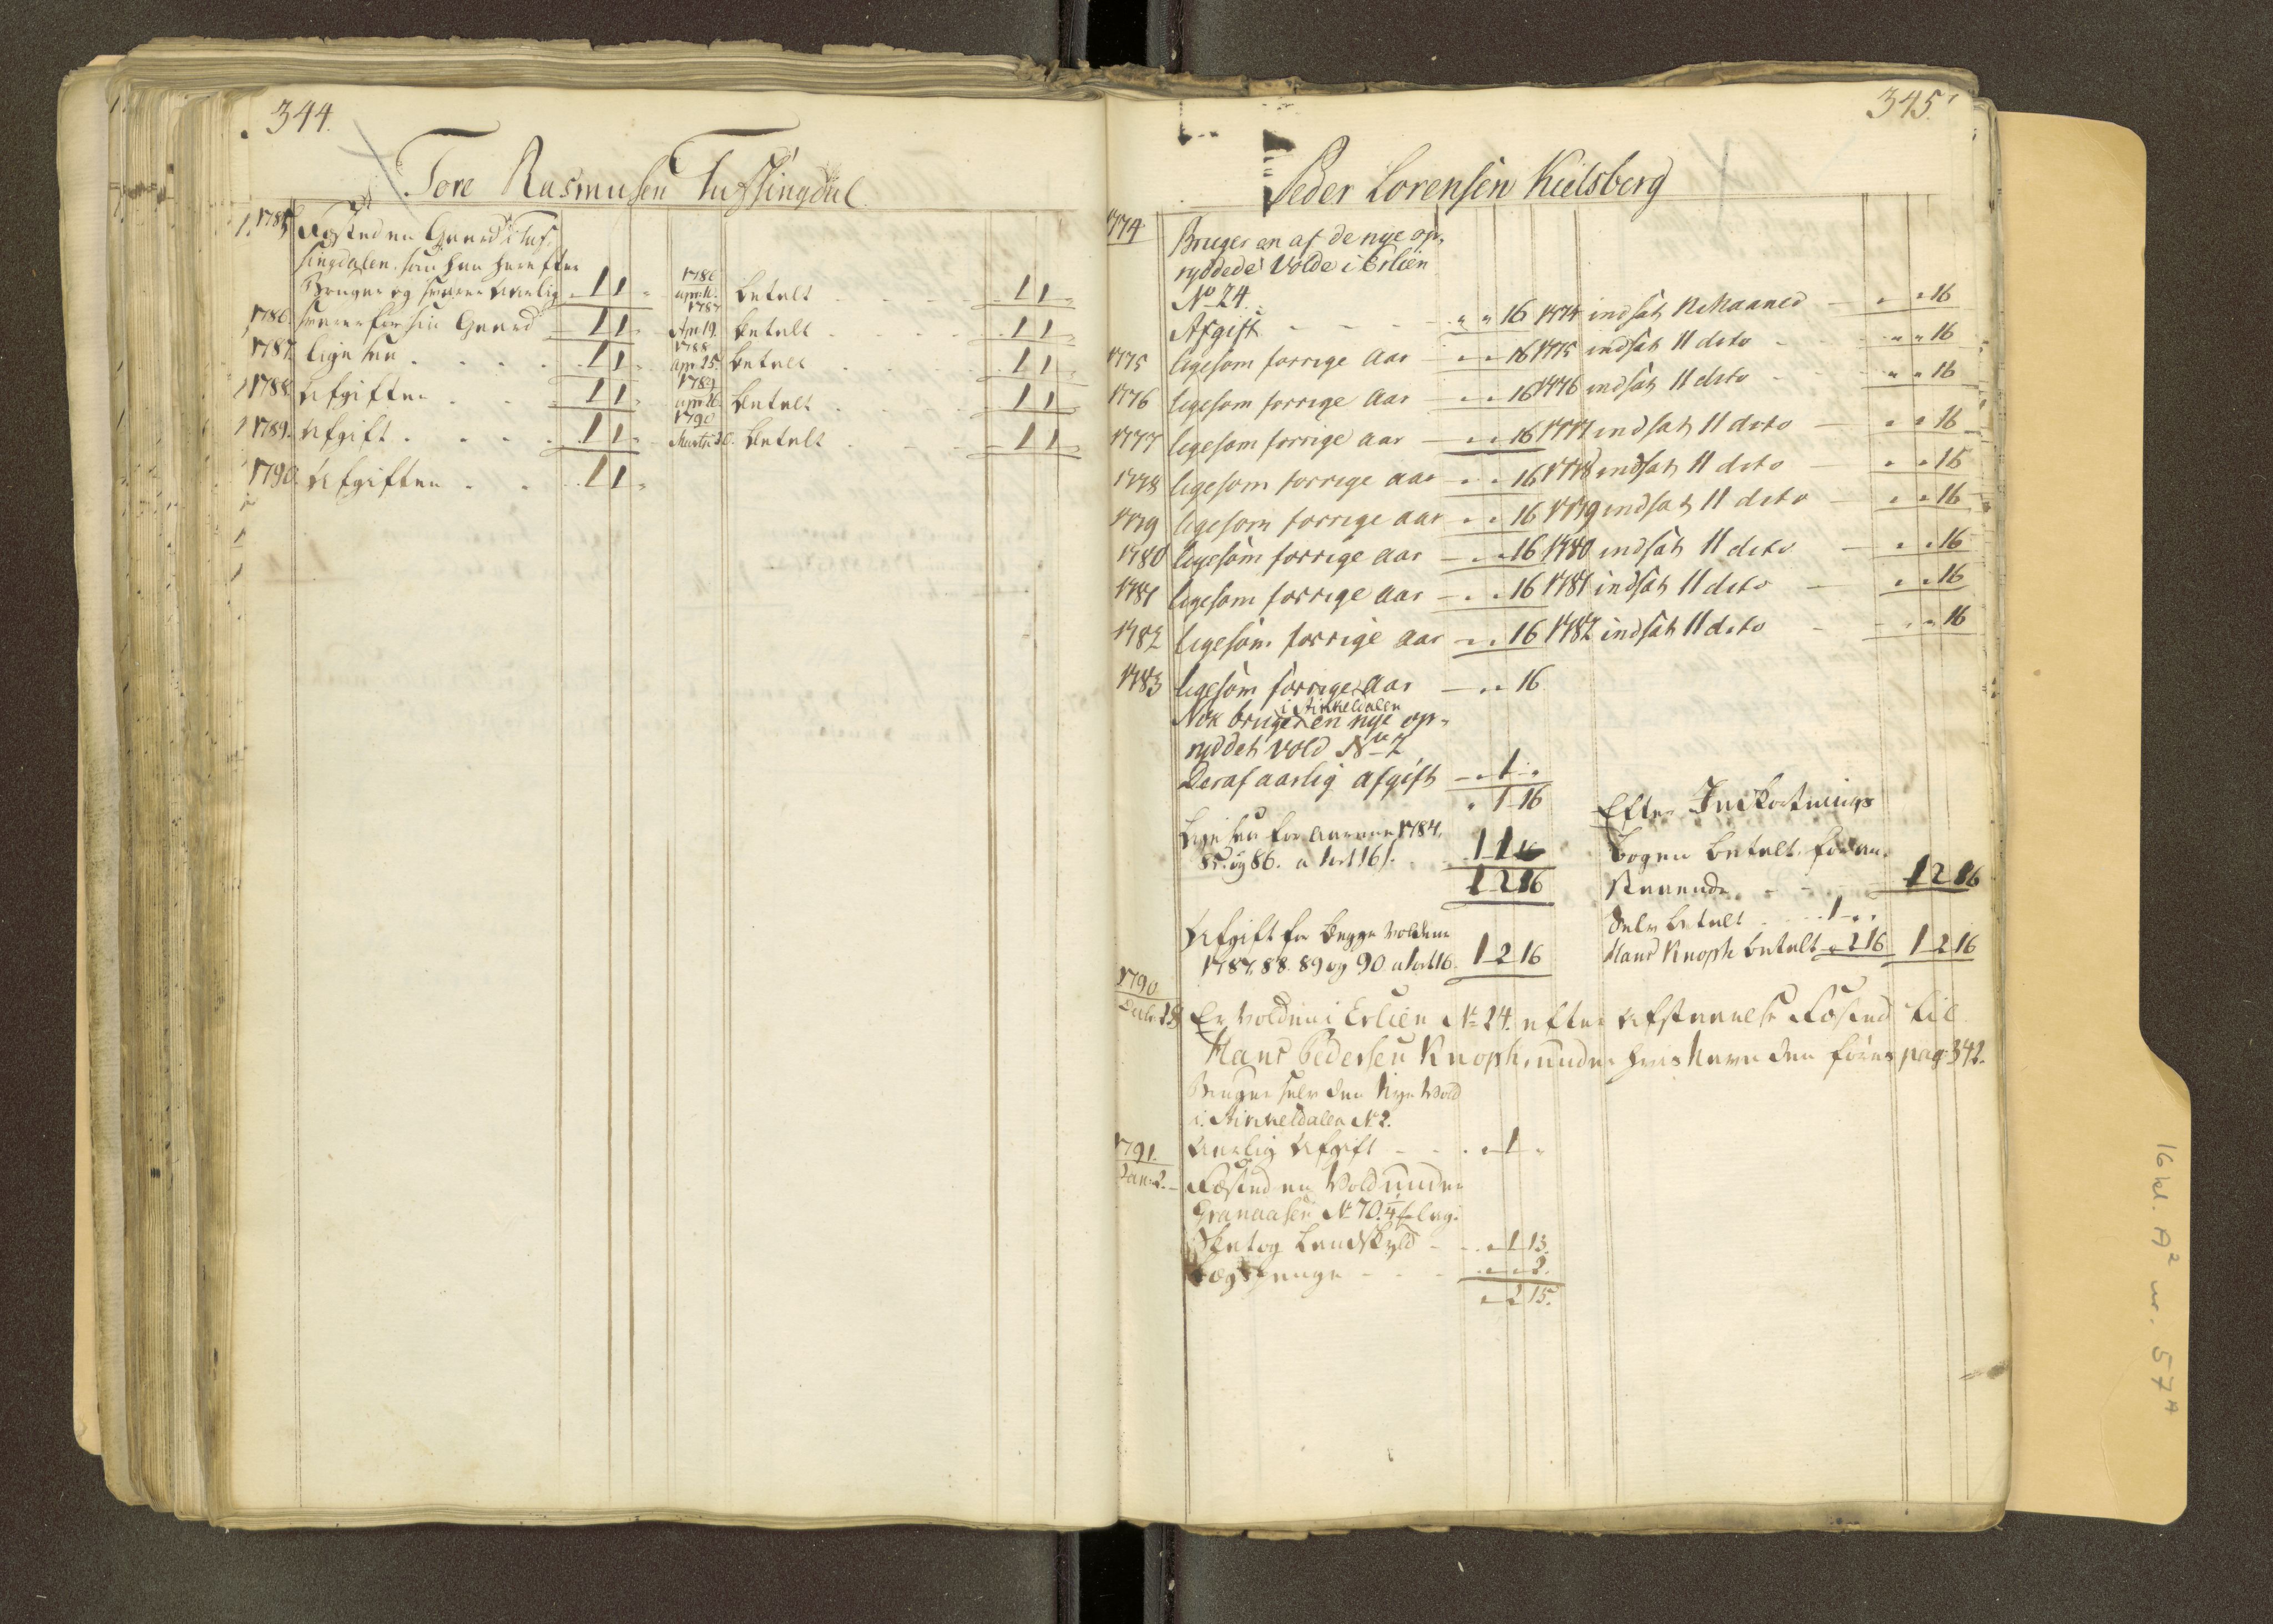 344.
Tore Rasmusen Tufssingdal
1785 Fæsted en Gaard i Tuf,
singdalen. som han herefter
Bruger og svarer Aarlig 1 1 „ 1786 april. betalt 1 1 „
1786. svarer for sin Gaard 1 1 „ 1787 Apr. 19. betalt 1 1 „
1787. ligesaa 1 1 „ 1788 apr. 25. betalt 1 1 „
1788. Afgiften 1 1 „ 1789 apr. 26. betalt 1 1 „
1789. Afgift 1 1 „ 1790 Martii betalt 1 1 „
1790. Afgiften 1 1 „
345.
Peder Lorensen Kielsberg
1774 Bruger en af de nye op,
ryddede Volde i Erlien
No 24.
Afgift „ „ 16 1774 indsat 11 Maaned „ „ 16
1775 ligesom forrige Aar „ „ 16 1775 indsat 11 dito „ „ 16
1776 ligesom forrige Aar „ „ 16 1776 indsat 11 dito „ „ 16
1777 ligesom forrige aar „ „ 16 1777 indsat 11 dito „ „ 16
1778 ligesom forrige aar „ „ 16 1778 indsat 11 dito „ „ 16
1779 ligesom forrige aar „ „ 16 1779 indsat 11 dito „ „ 16
1780 ligesom forrige aar „ „ 16 1780 indsat 11 dito „ „ 16
1781 ligesom forrige aar „ „ 16 1781 indsat 11 dito „ „ 16
1782 ligesom forrige aar „ „ 16 1782 indsat 11 dito „ „ 16
1783 ligesom forrige Aar „ „ 16
i Rinkeldalen
Nok bruger en nye op,
ryddet vold No 2
Deraf aarlig afgift „ 1 „
„ 1 16
Efter Indkortnings
ligesaa for Aarene 1784.
85. og 86. a 1 ort 16 s. 1 1 16
bogen betalt foran,
1 2 16 staaende 1 2 16
Selv betalt 1 „ „
Afgift for begge Voldene
1787. 88. 89 og 90 a 1 ort 16. 1 2 16 Hans Knoph betalt „ 2 16 1 2 16
1790
Er Volden i Erlien No 24. efter Afstaaelse Fæsted til
Hans Pedersen Knoph, under hvis Navn den føres pag 342.
Bruger selv den Nye Vold
i Rinkeldalen No 2.
Aarlig Afgift „ 1 „
1791.
Janr. 2. Fæsted en Vold under
Granaasen No 70.
Skat og Landskyld „ 1 13.
Bogpenge „ „ 2.
„ 2 15.
16 kl. A2 nr. 57A